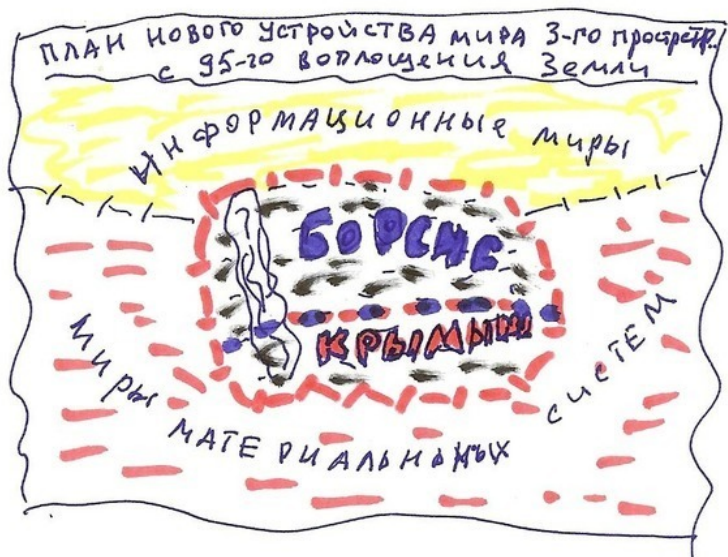 ПЛАН НОВОГО УСТРОЙСТВА МИРА 3-ГО
с 95-го ВОПЛОЩЕНИЯ ЗЕМЛИ
ИНФОРМАЦИОННЫЕ МИРЫ
МИРЫ МАТЕРИАЛЬНЫХ СИСТЕМ